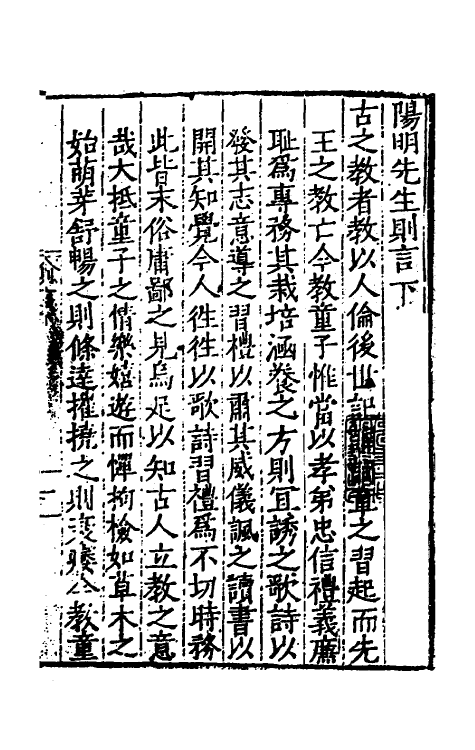 陽明先生則言下
古之教者教以人倫後世記誦詞章之習起而先
王之教亡今教童子惟當以孝弟忠信禮義廉
耻爲專務其栽培涵養之方則宜誘之歌詩以
發其志意導之習禮以肅其威儀諷之讀書以
開其知覺今人徃徃以歌詩習禮爲不切時務
此皆末俗庸鄙之見烏足以知古人立教之意
哉大抵童子之情樂嬉遊而憚拘檢如草木之
始萌芽舒暢之則條達摧撓之則衰痿今教童